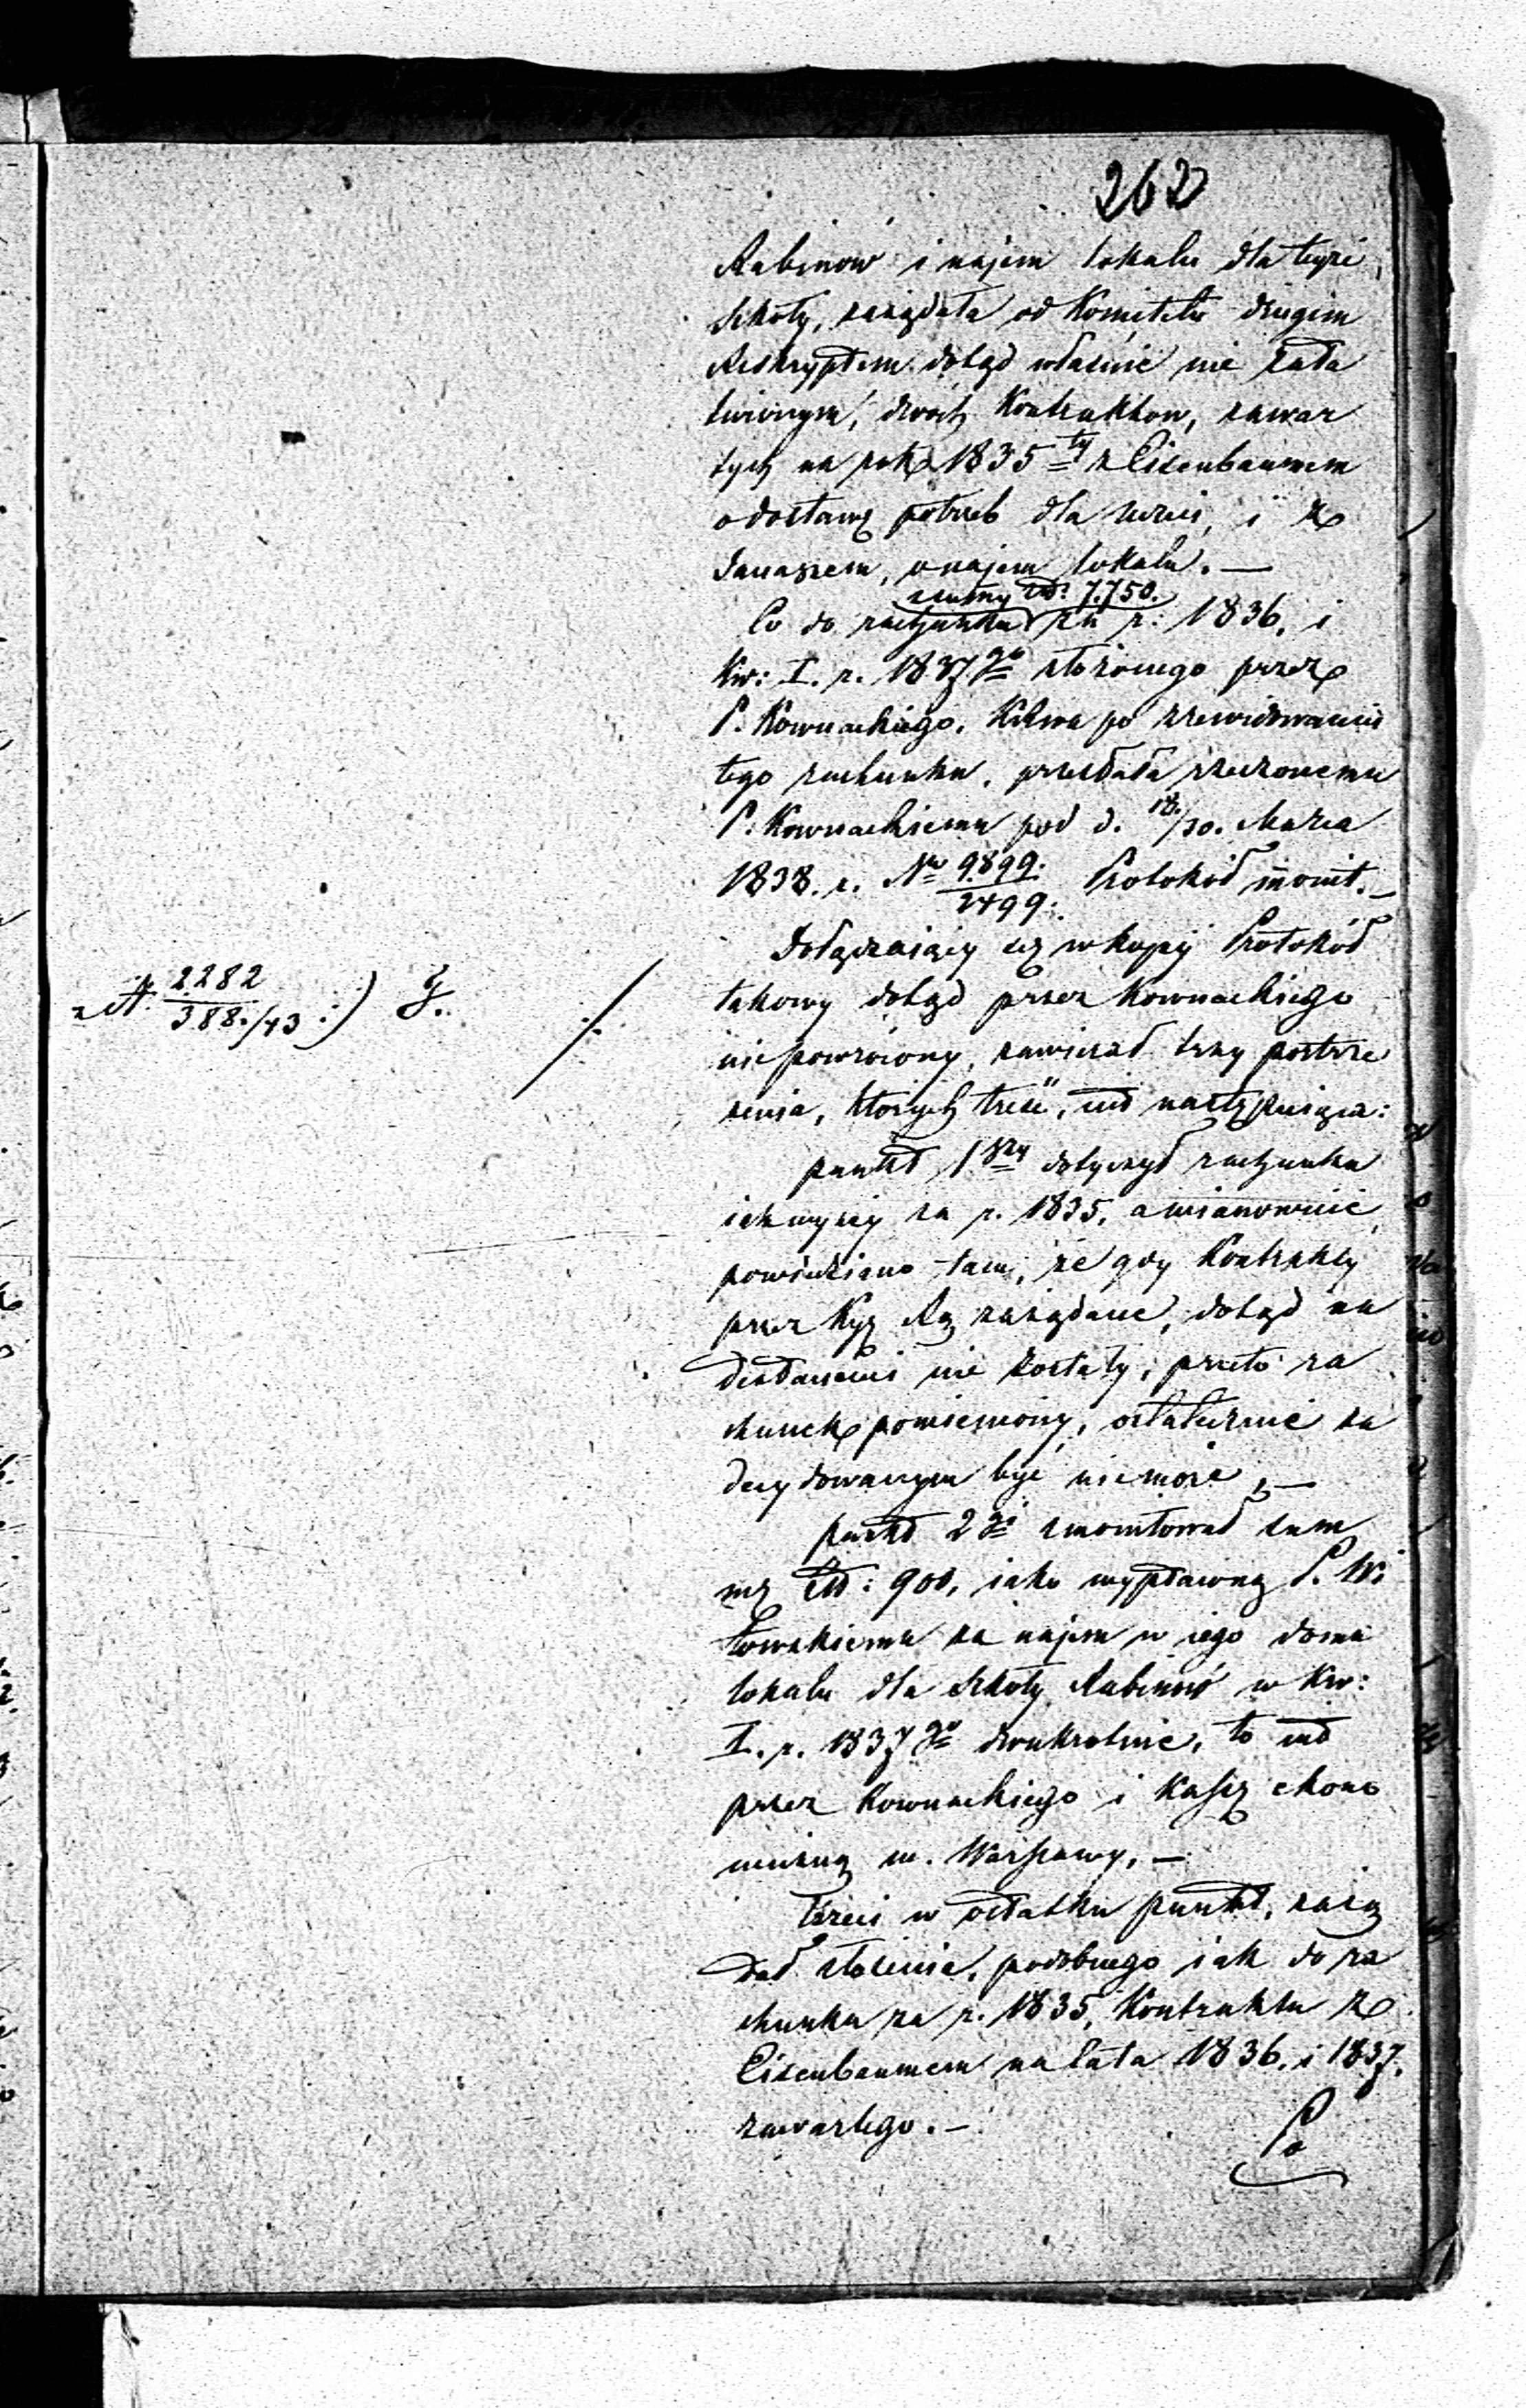 262
Rabinów i najem lokalu dla tejże
Szkoły, zażądała od Komitetu drugim
Reskryptem dotąd właśnie nie zała
twionym, dwóch Kontraktow, zawar
tych na rok 1835ty z Eisenbaumem
o dostawę potrzeb dla uczni, i z
Janaszem, o najem lokalu. —
summy Złł: 7.750.
Co do rachunku za r: 1836, i
Kw: I. r. 1837go złożonego przez
P. Kownackiego, po zrewidowaniu
tego rachunku, przesłała rzeczonemu
P. Kownackiemu pod d. 18/30. Marca
1838. r. Nro 9899./2499. Protokół monit. —
Dołączaiący się w kopij Protokół
takowy dotąd przez Kownackiego
niepowrócony, zawierał trzy postrze
żenia, których treść, iest następuiąca:
punkt 1szy dotyczył rachunku
iak wyżey za r. 1835, a mianowicie
powiedziano tam, że gdy Kontrakty
przez zażądane, dotąd na
desłanemi nie zostały, przeto ra
chunek pomieniony, ostatecznie za
decydowanym być niemoże, —
punkt 2gi zmonitował sum
mę Złł: 900, iako wypłaconą P. Wi
towskiemu za najem w iego domu
lokalu dla Szkoły Rabinów w Kw:
I. r. 1837go dwukrotnie, to iest
przez Kownackiego i Kassę ekono
miczną m. Warszawy, —
Trzeci w ostatku punkt, zażą
dał złożenia, podobnego iak do ra
chunku za r. 1835, Kontraktu z
Eisenbaumem na lata 1836. i 1837.
zawartego. —
Po
2282
388./43 :) g.
./.